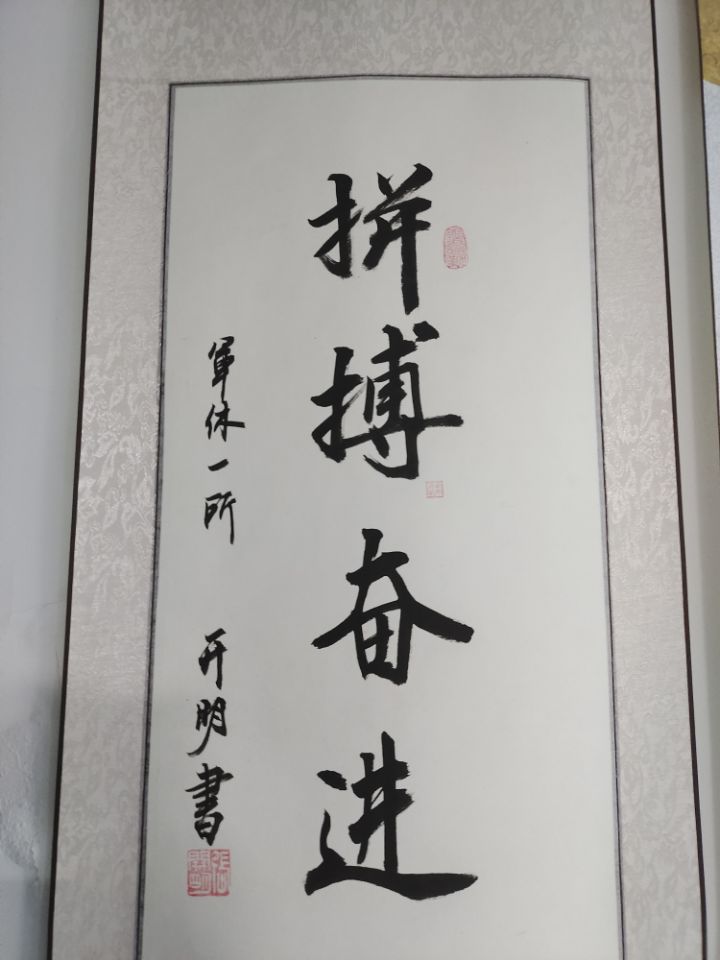 拼搏奋进
軍休一所 开明書